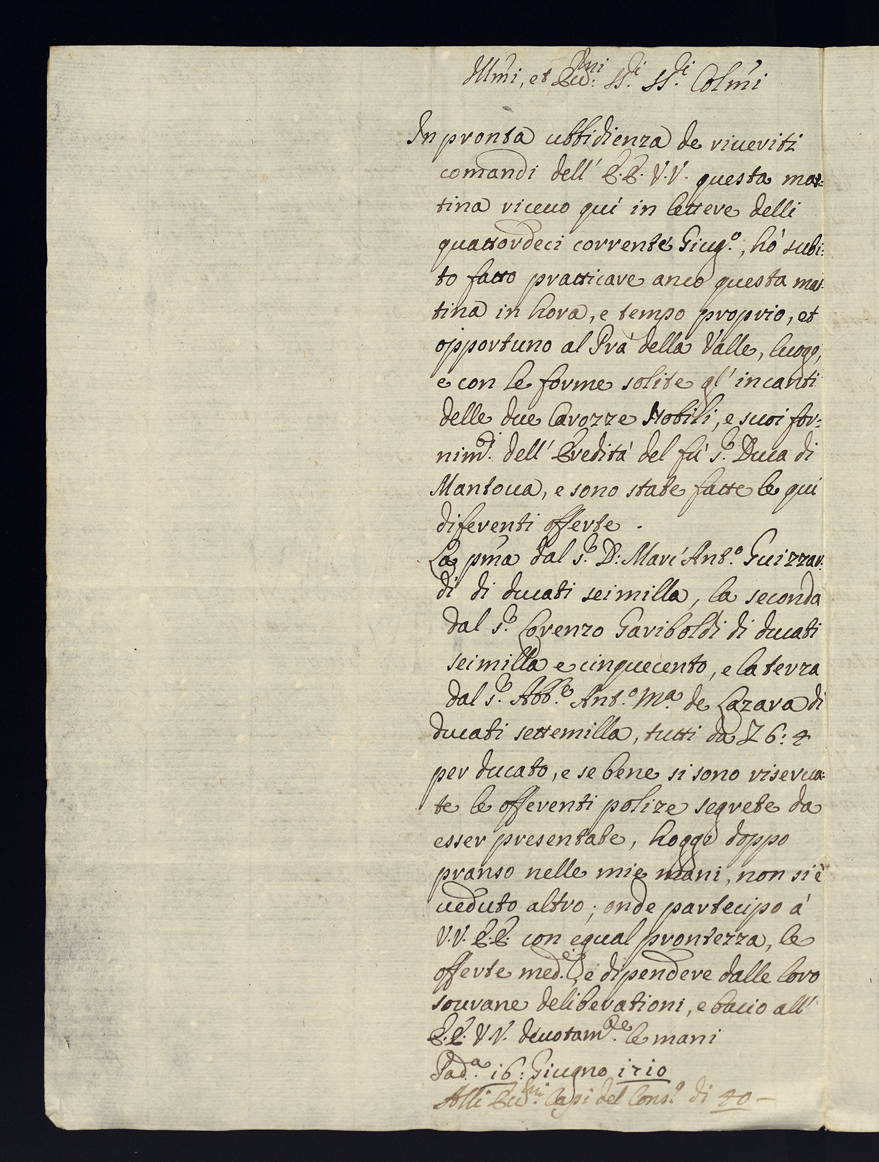 Illmi, et Eccmi SSi. SSi. Colmi
In pronta ubbidienza de riveriti
comandi dell' E.E. V.V. questa mat:
tina riceuo qui in lettere delli
quattordeci corrente Giugo., hò subi:
to fatto pratticare anco questa mat
tina in hora, e tempo proprio, et
opportuno al Prà della Valle, luogo,
e con le forme solite gl' incanti
delle due Carozze Nobili, e suoi for:
nimti. dell' Eredità del fù Sr. Duca di
Mantoua, e sono state fatte le quì
diferenti offerte.
La pma dal Sr. D: Marc' Anto. Guizzar:
di di ducati seimilla, la seconda
dal Sr. Lorenzo Gariboldi di ducati
seimilla e cinquecento, e la terza
dal Sr. Abbe. Anto. Ma. de Lazara di
ducati settemilla, tutti da L 6: 4
per ducato, e se bene si sono riserua:
te le offerenti polize segrete da
esser presentate, hoggi doppo
pranso nelle mie mani, non si è
ueduto altro; onde partecipo à
V.V. E.E. con equal prontezza, le
offerte mede., e dipendere dalle loro
sourane deliberationi, e bacio all'
E.E. V.V. deuotamte. le mani
Pada. 16: Giugno 1710
Alli Eccmi. Capi del Conso. di 40 –